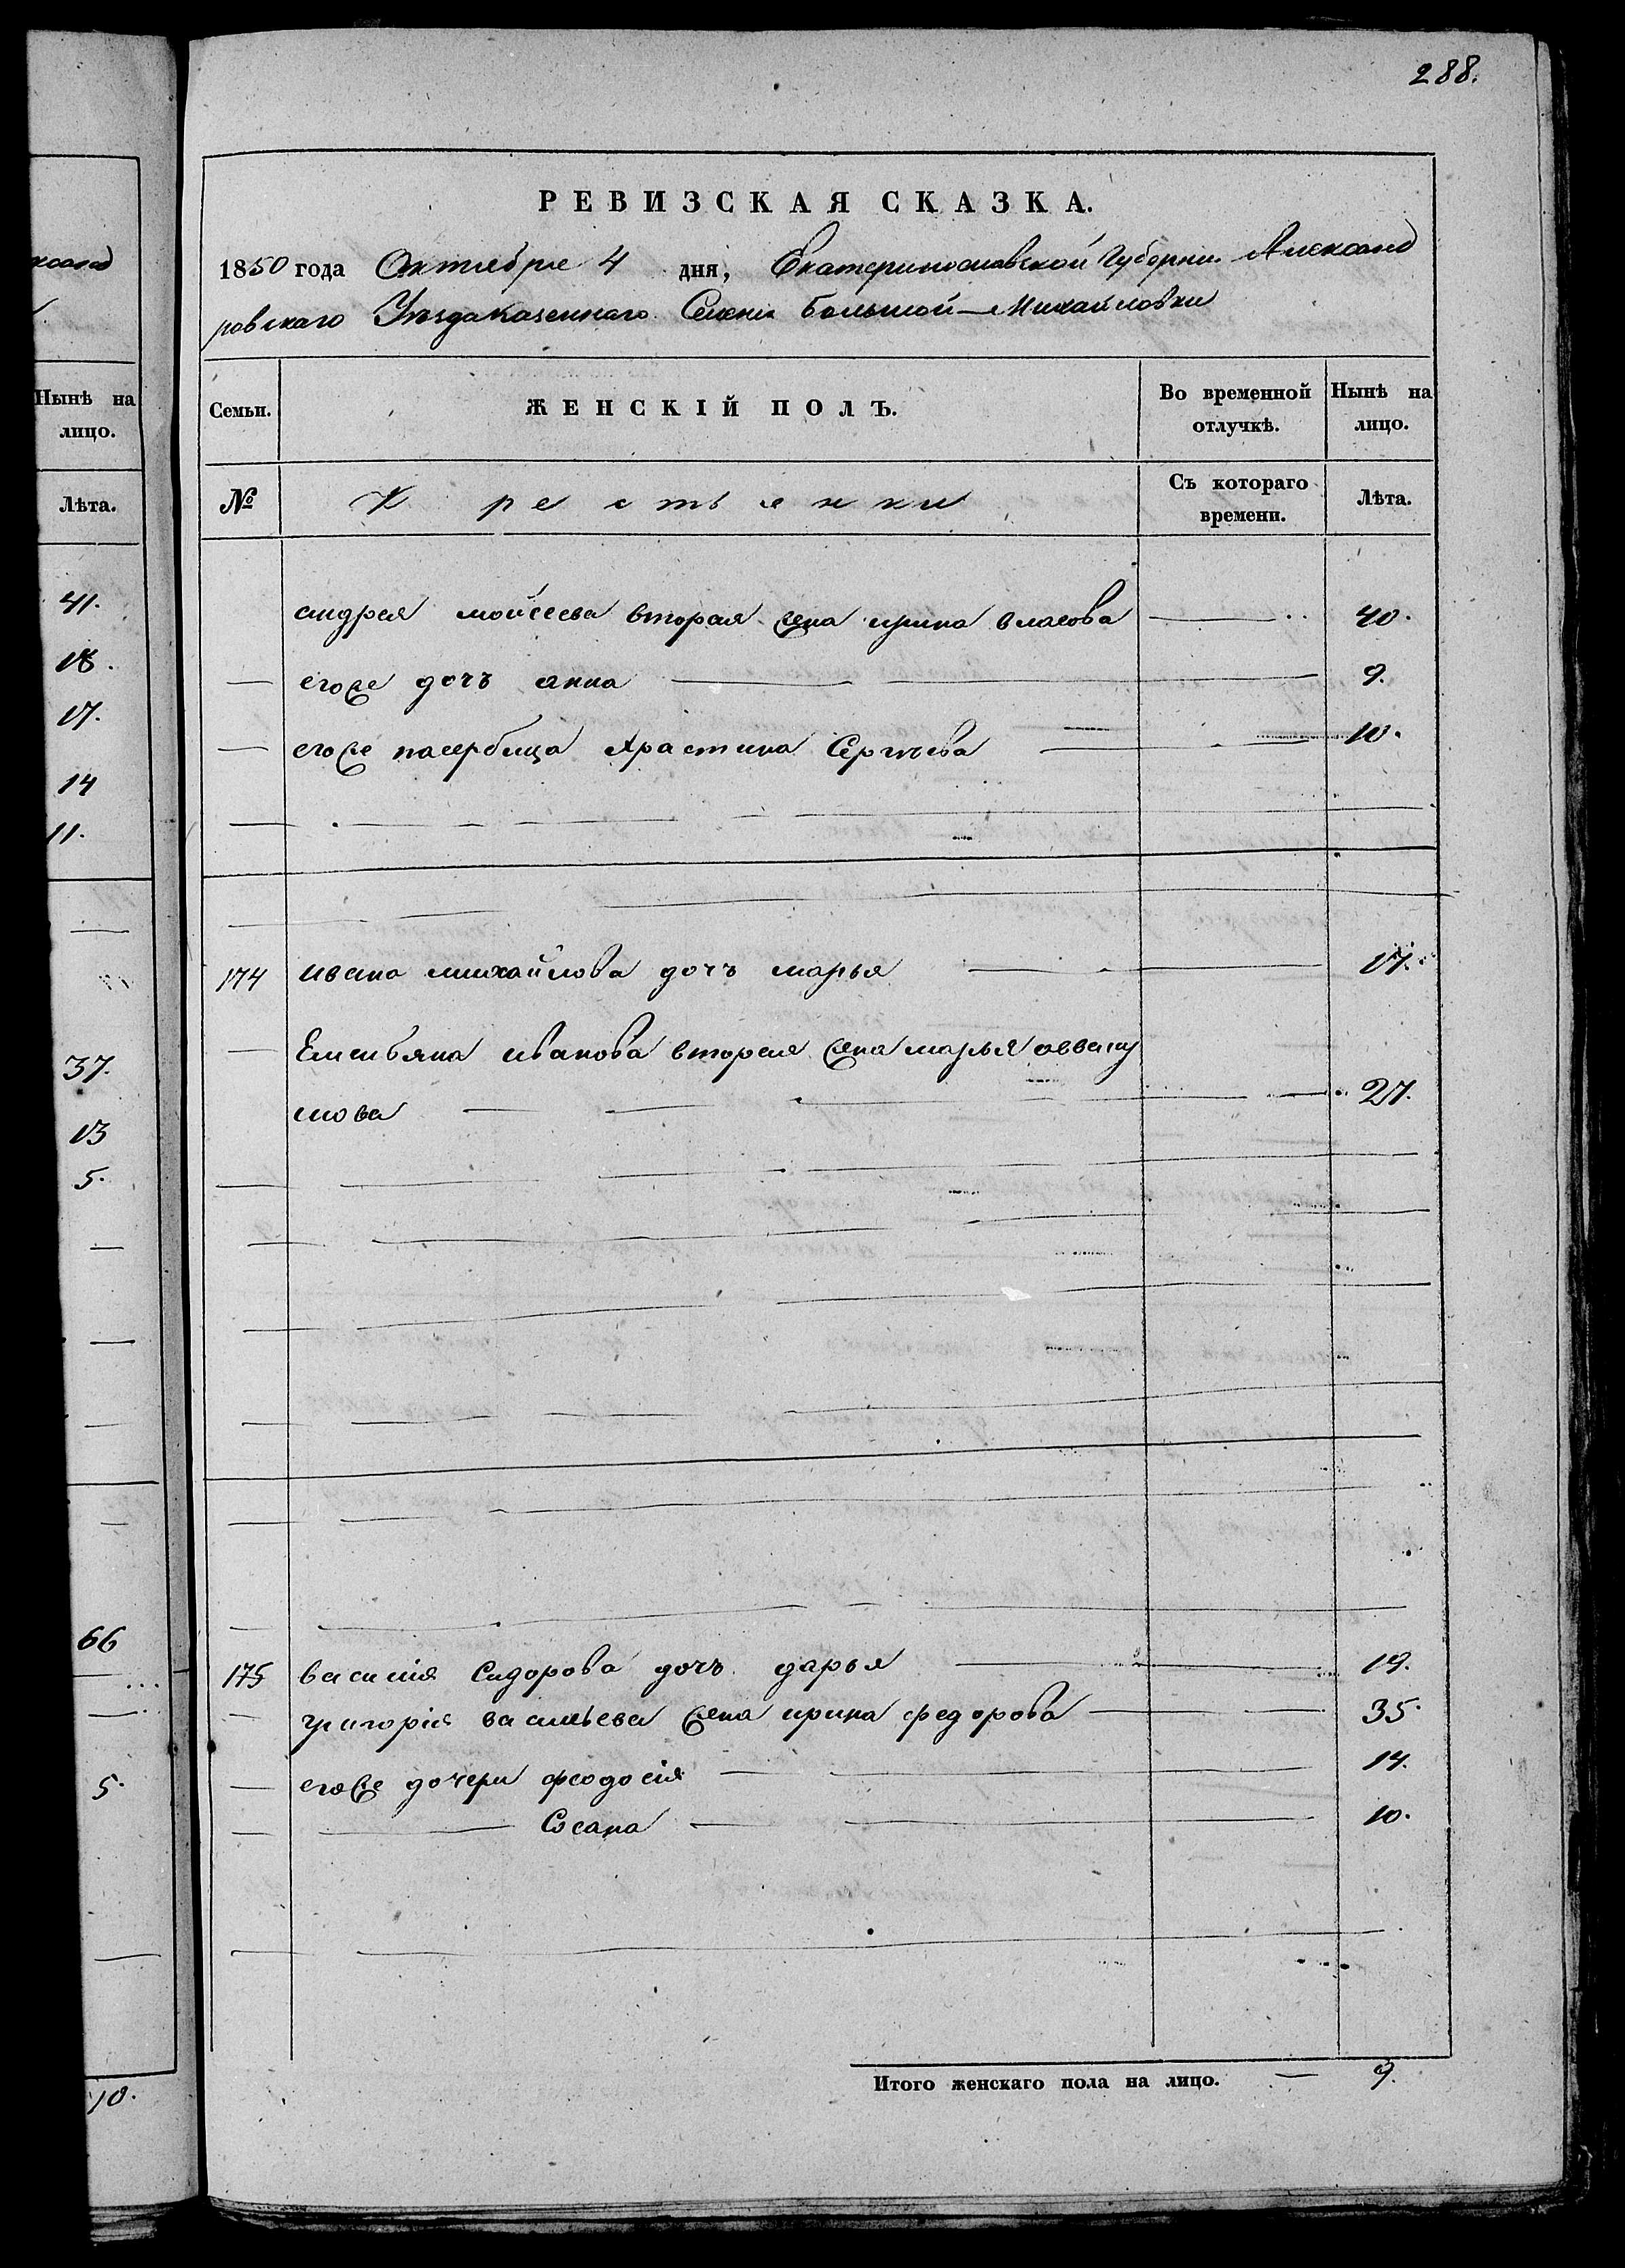 288.
РЕВИЗСКАЯ СКАЗКА.
1850 года Октября 4 дня, Екатеринославской Губернии Александ
ровскаго Уѣзда Казеннаго Селения Большой-Михайловки
Семьи.
ЖЕНСКІЙ ПОЛЪ.
Во временной отлучкѣ.
Нынѣ на лицо.
№
Крестьянки
Съ котораго времени.
Лѣта.
андрея мойсеева вторая жена ирина власова 40.
егоже дочъ анна 9.
егоже пасербица Храстина Сергѣева 10.
174 ивана михайлова дочъ марья 17.
Емельяна иванова вторая жена марья авваку
мова 27.
175 василия Сидорова дочъ дарья 19.
григорія васильева жена ирина федорова 35.
егоже дочери феодосія 14.
Сосана 10.
Итого женскаго пола на лицо. — 9.
Нынѣ на
лицо.
Лѣта.
41.
18.
17.
14
11.
37.
13
5.
66
5.
10.